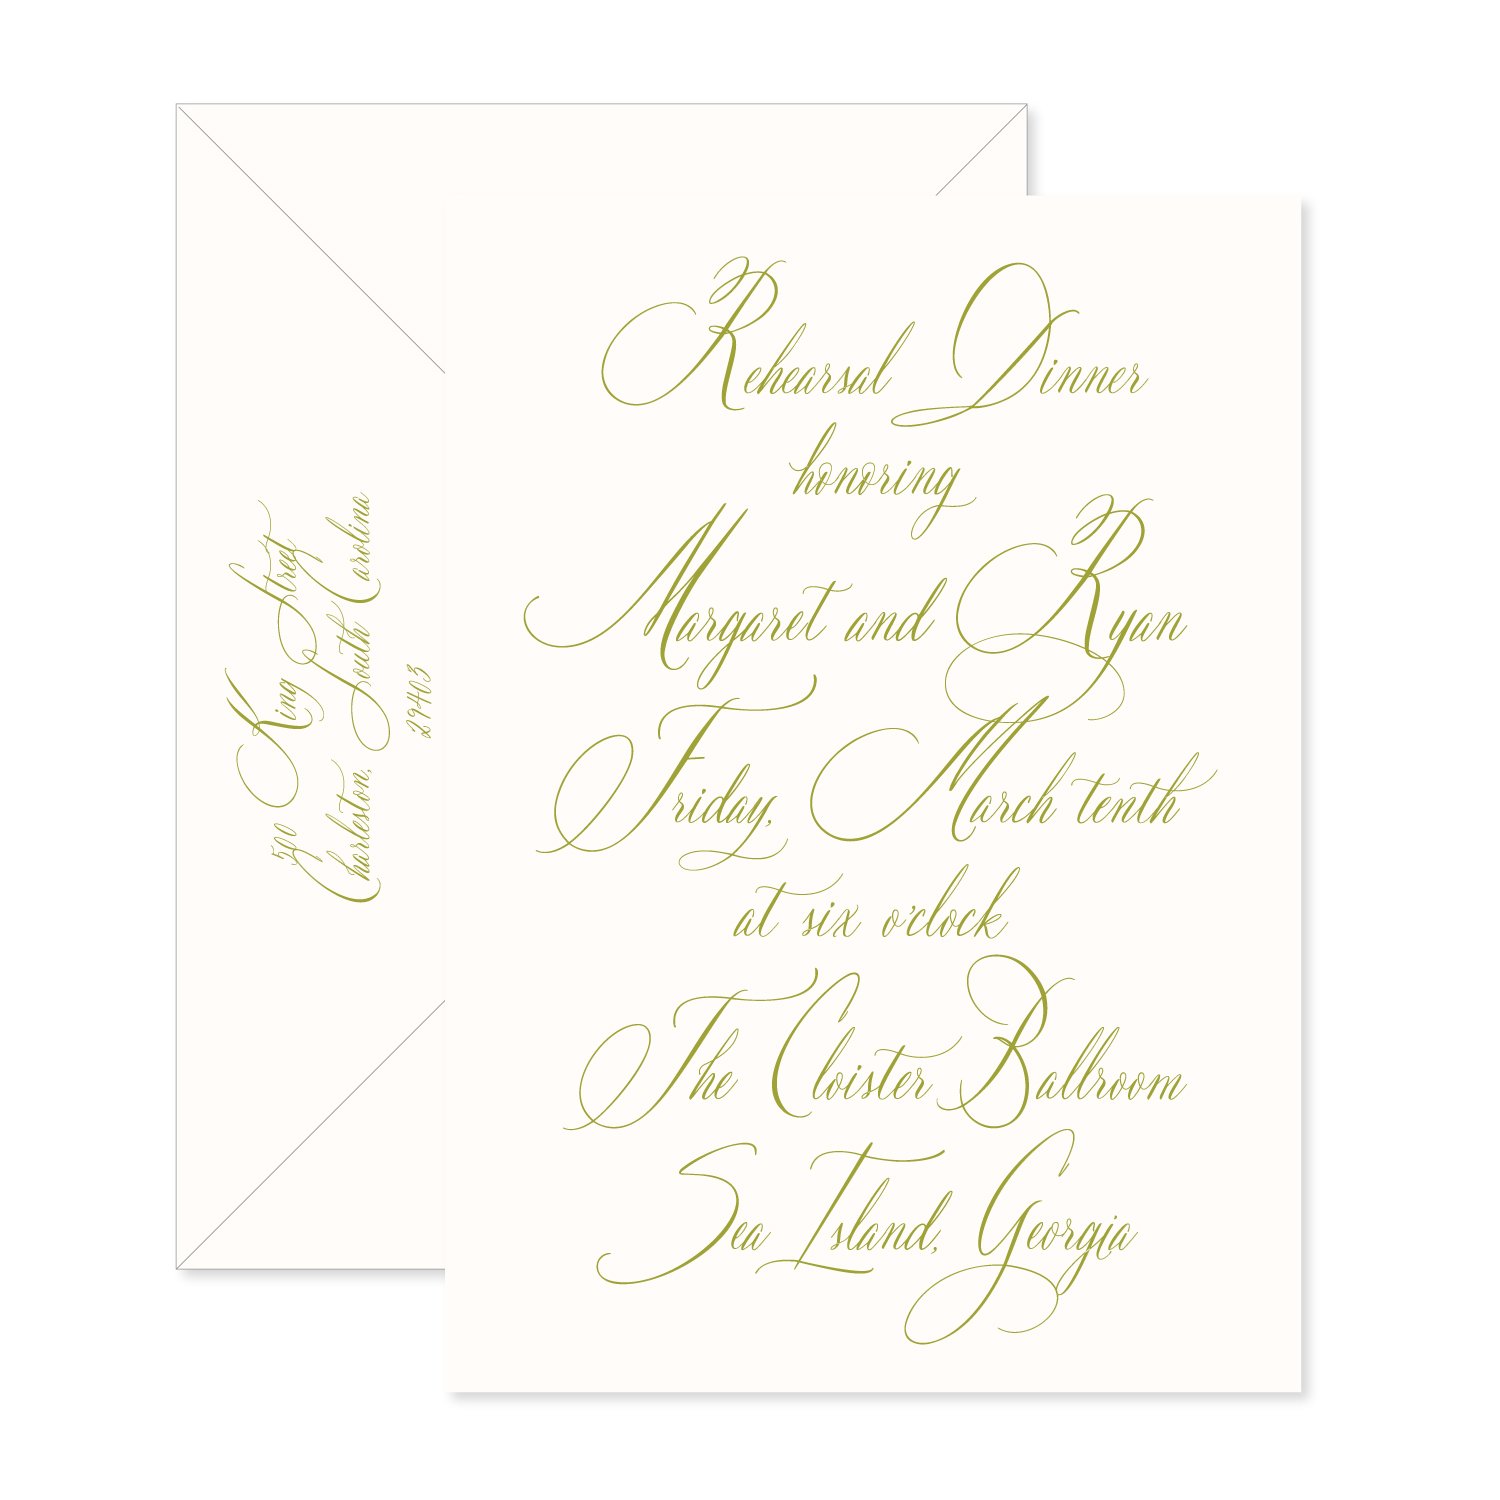 Rehearsal Dinner
honoring
Margaret and Ryan
Friday, March tenth
at six o'clock
The Cloister Ballroom
Sea Island, Georgia
500 King Street
Charleston, South Carolina
29403